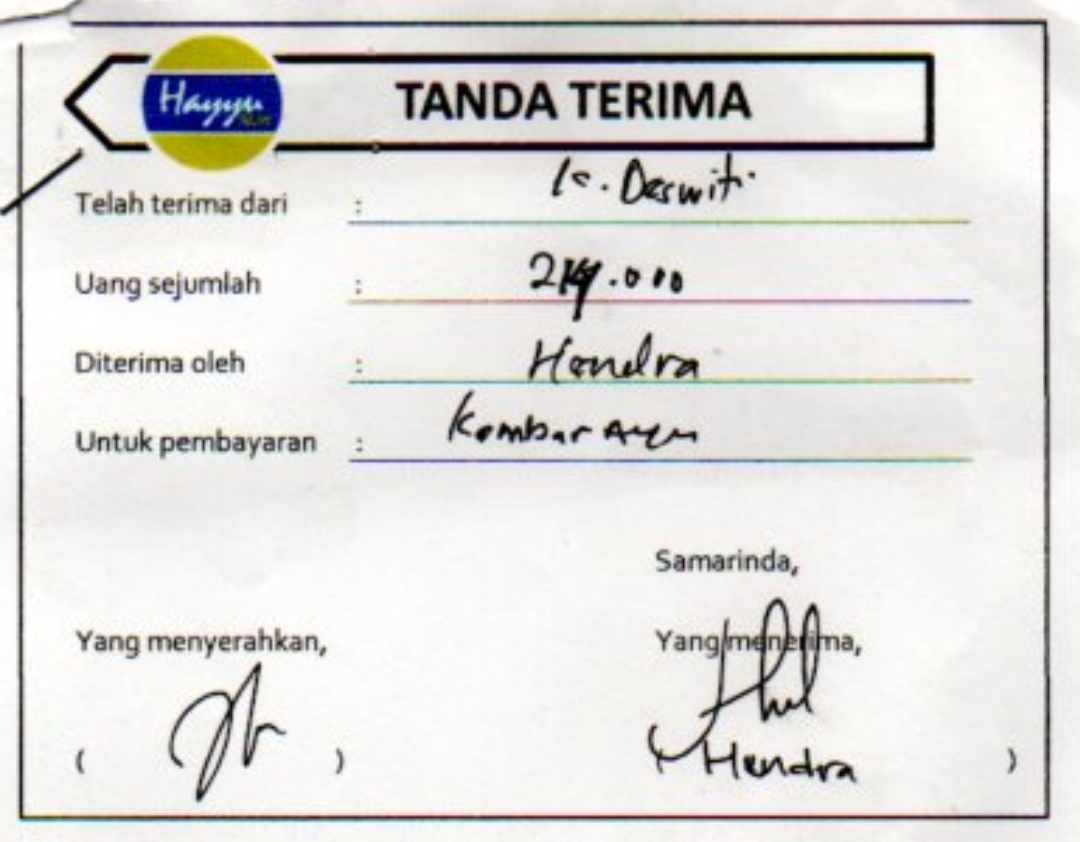 Hayyu
TANDA TERIMA
Telah terima dari : Deswiti
Uang sejumlah :
Diterima oleh : Hendra
Untuk pembayaran : Kembar Ayu
Samarinda,
Yang menyerahkan, Yang menerima,
( ) ( Hendra )